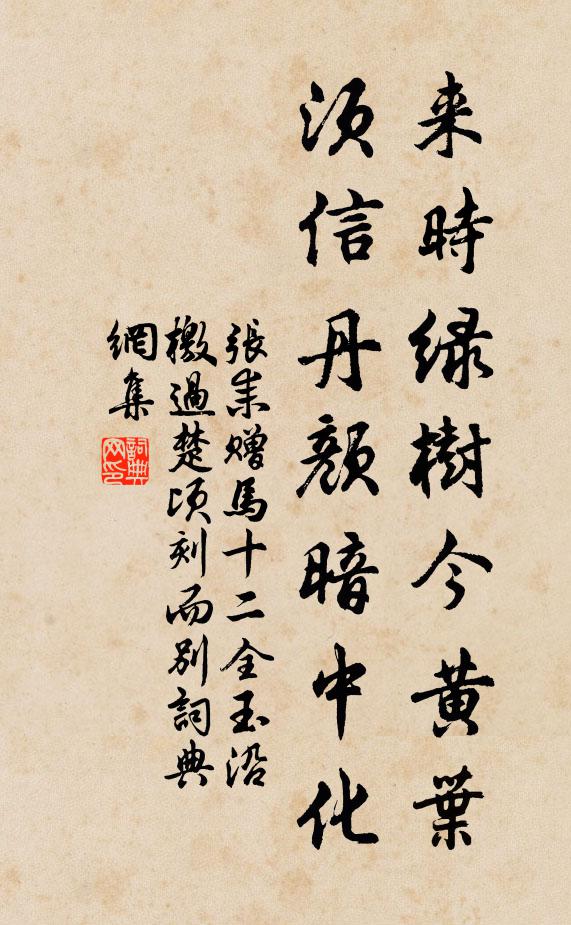 来時緑樹今黄葉
須信丹顏暗中化
張耒贈馬十二全玉沿
檄過楚頃刻而别詞典
網集
詞典
网印